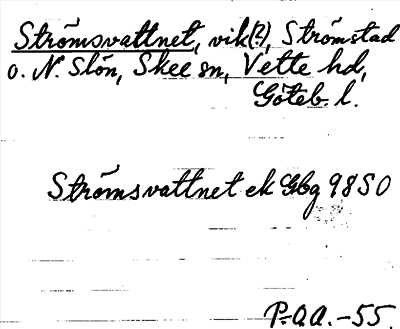 Strömsvattnet, vik(?), Strömstad
o. N. Slön, Skee sn, Vette hd,
Göteb. l.
Strömsvattnet ek Gbg 98 SO
P.O.A. -55.